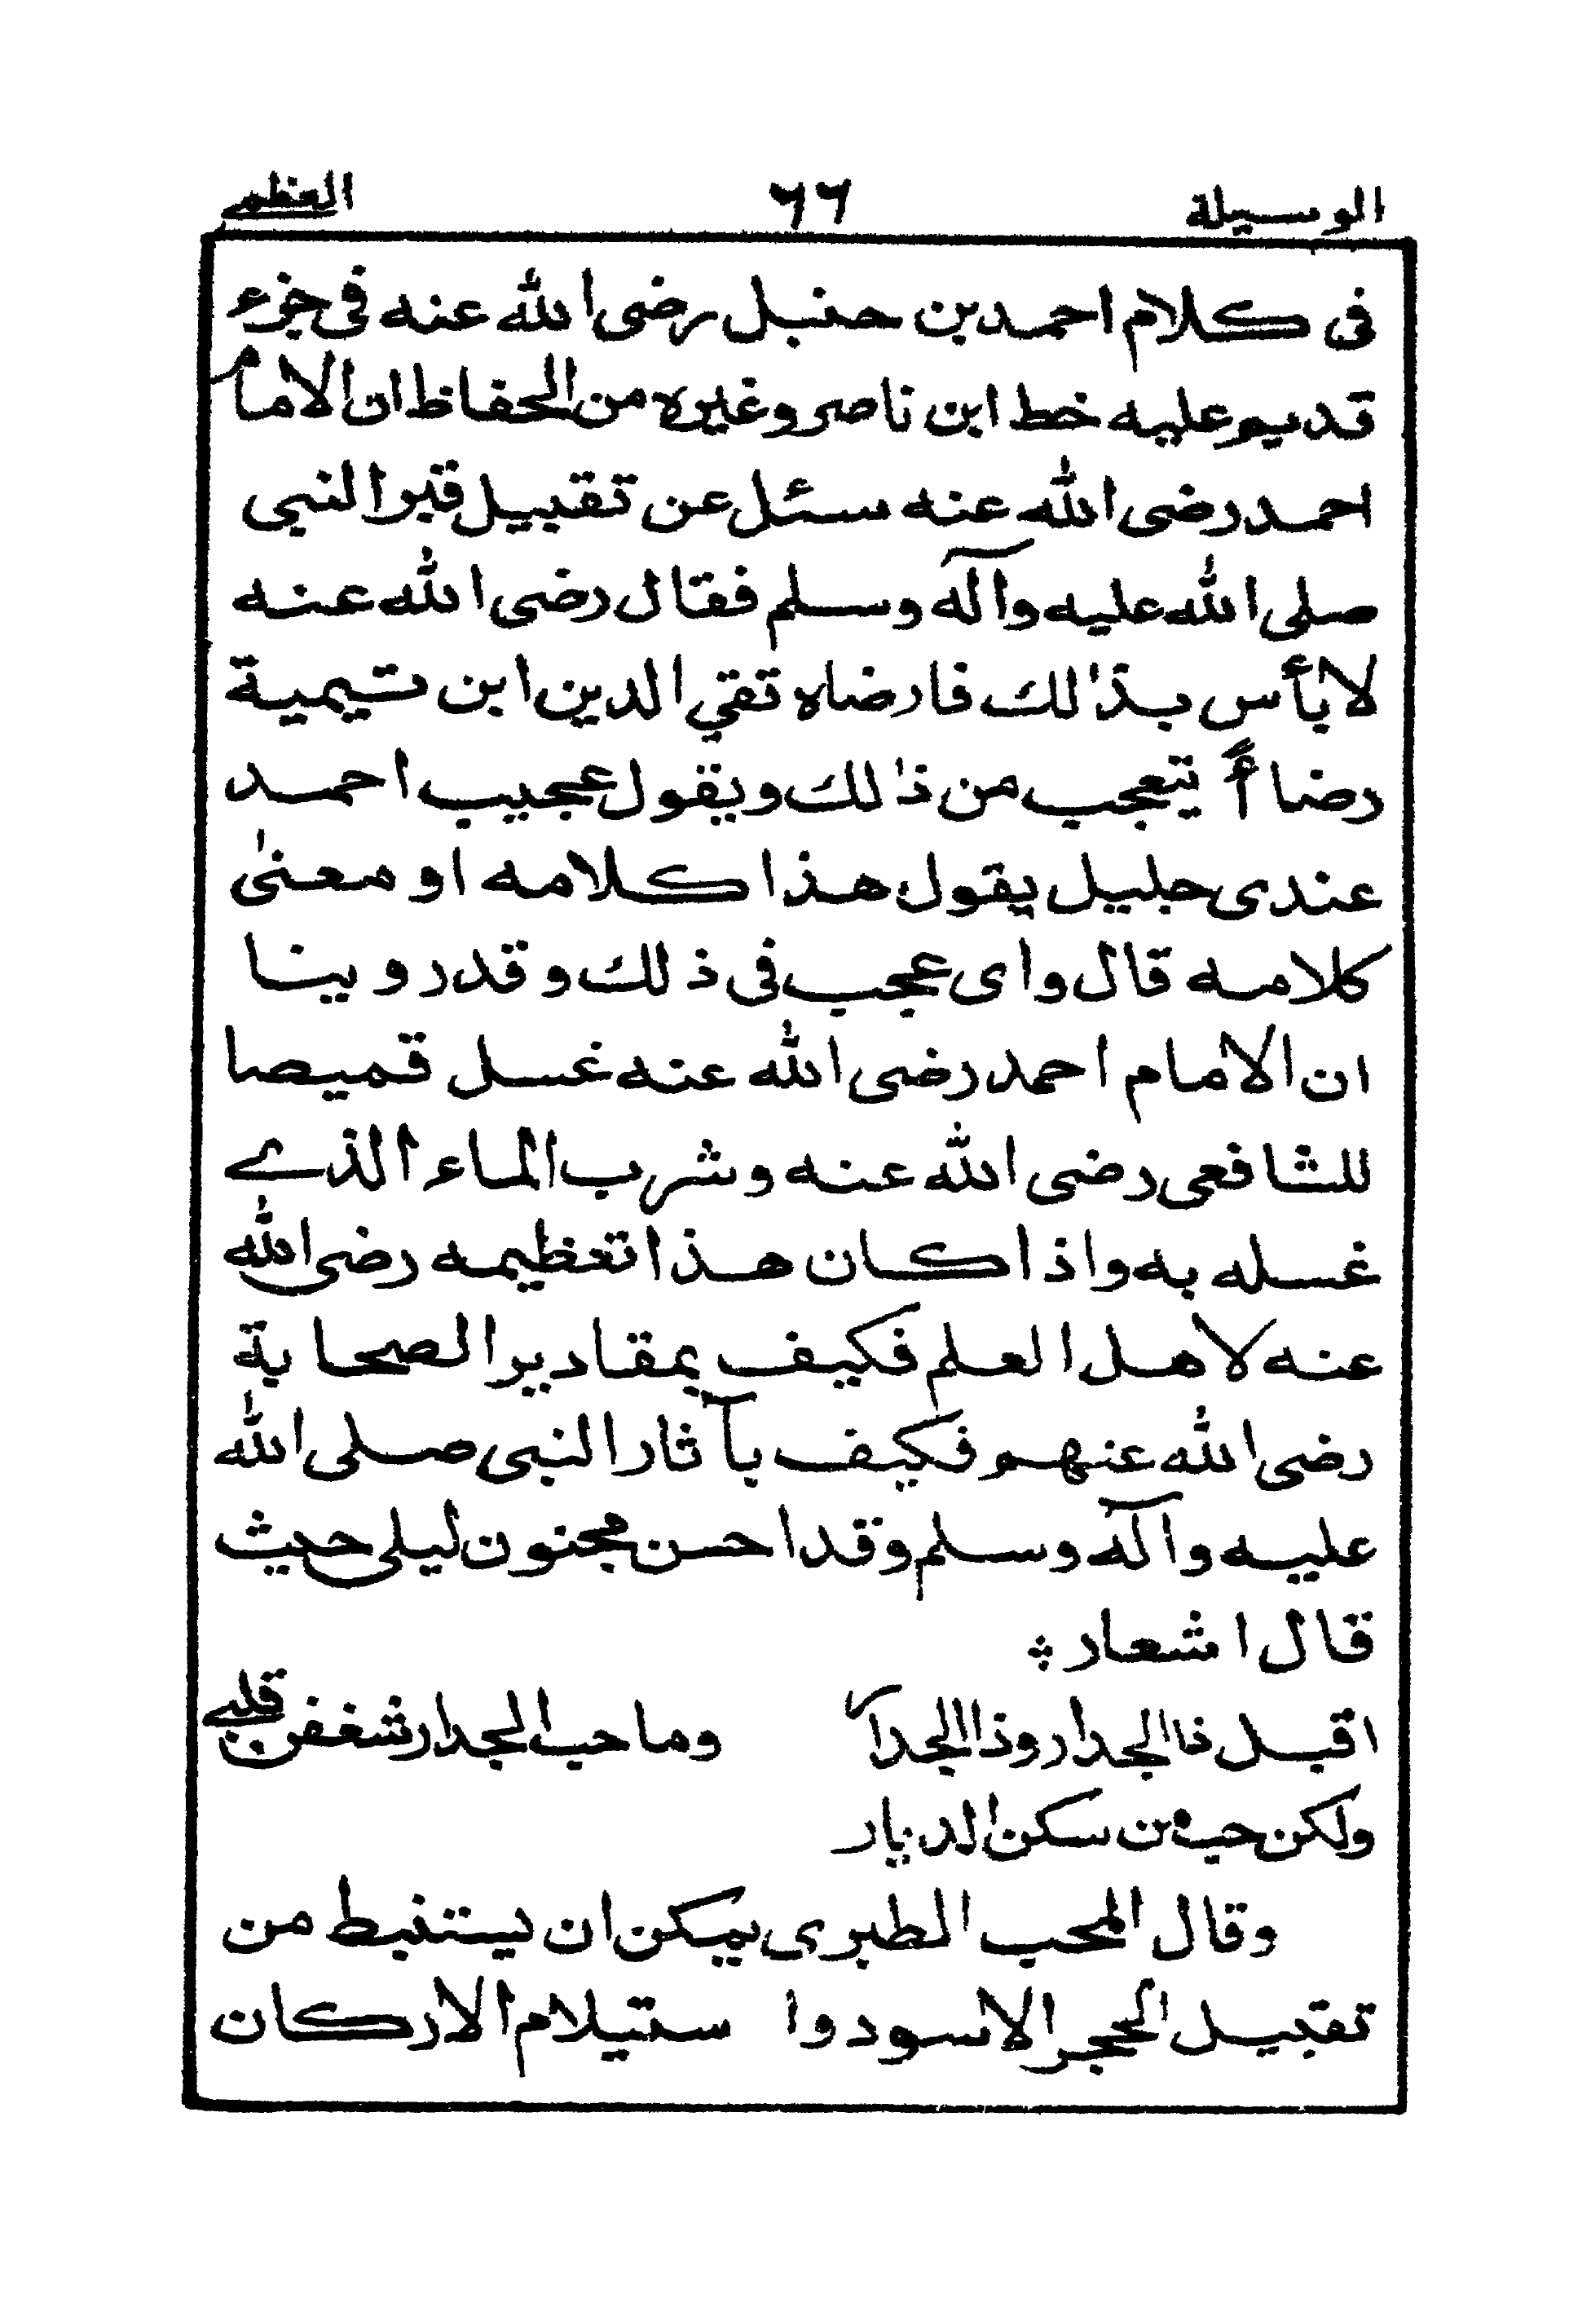 الوسيلة ٦٦ العظمے
فى كلام احمد بن حنبل رضى الله عنه فى جزء
قديم عليه خط ابن ناصر وغيره من الحفاظ ان الامام
احمد رضى الله عنه سئل عن تقبيل قبر النبى
صلى الله عليه وآله وسلم فقال رضى الله عنه
لا بأس بذٰلك فارضاه تقي الدين ابن تيمية
رضا أً يتعجب من ذٰلك ويقول عجيب احمد
عندى جليل يقول هذا كلامه او معنىٰ
كلامه قال واى عجب فى ذلك وقد روينا
ان الامام احمد رضى الله عنه غسل قميصا
للشافعى رضى الله عنه وشرب الماء الذے
غسله به واذا كان هذا تعظيمه رضى الله
عنه لاهل العلم فكيف بمقادير الصحابة
رضى الله عنهم فكيف بآثار النبى صلى الله
عليه وآله وسلم وقد احسن مجنون ليلى حيث
قال اشعار ؞
اقبل ذا الجدار وذا الجدار وما حب الجدار شغفن قلبے
ولكن حب من سكن الديار
وقال المحب الطبرى يمكن ان يستنبط من
تقبيل الحجر الاسود وا ستيلام الاركان